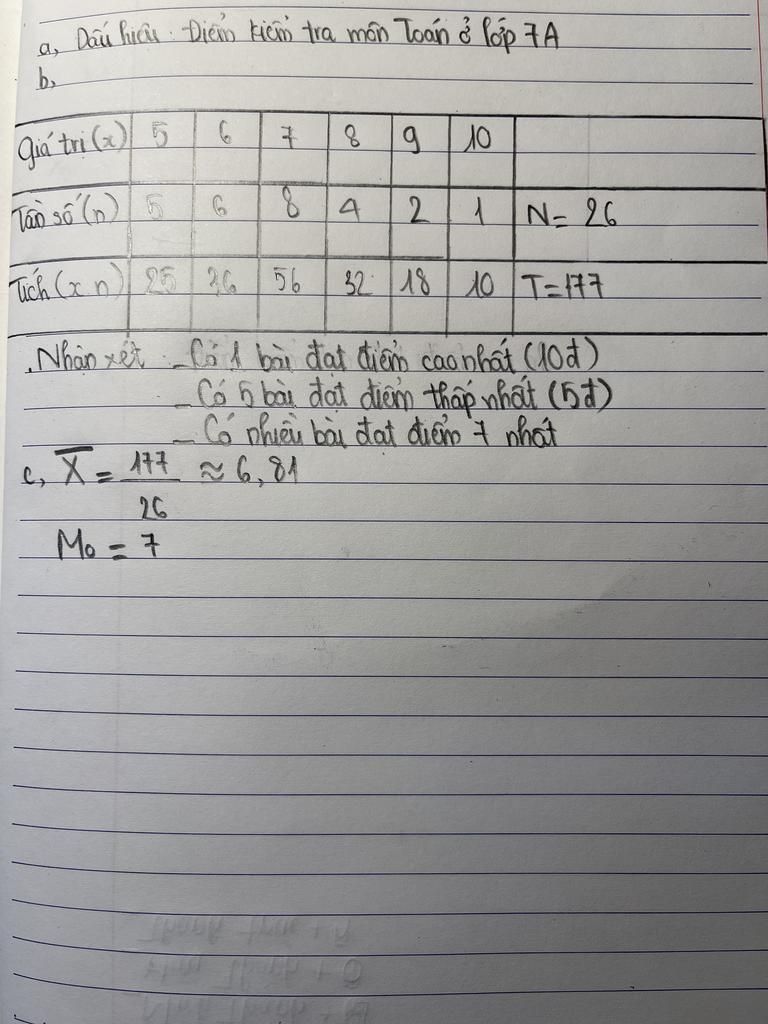 a, Dấu hiệu: Điểm kiểm tra môn Toán ở lớp 7A
b,
Giá trị (x) 5 6 7 8 9 10
Tần số (n) 5 6 8 4 2 1 N = 26
Tích (x.n) 25 36 56 32 18 10 T=177
. Nhận xét - Có 1 bài đạt điểm cao nhất (10đ)
- Có 5 bài đạt điểm thấp nhất (5đ)
- Có nhiều bài đạt điểm 7 nhất
c, X̅ = 177/26 ≈ 6,81
M₀ = 7